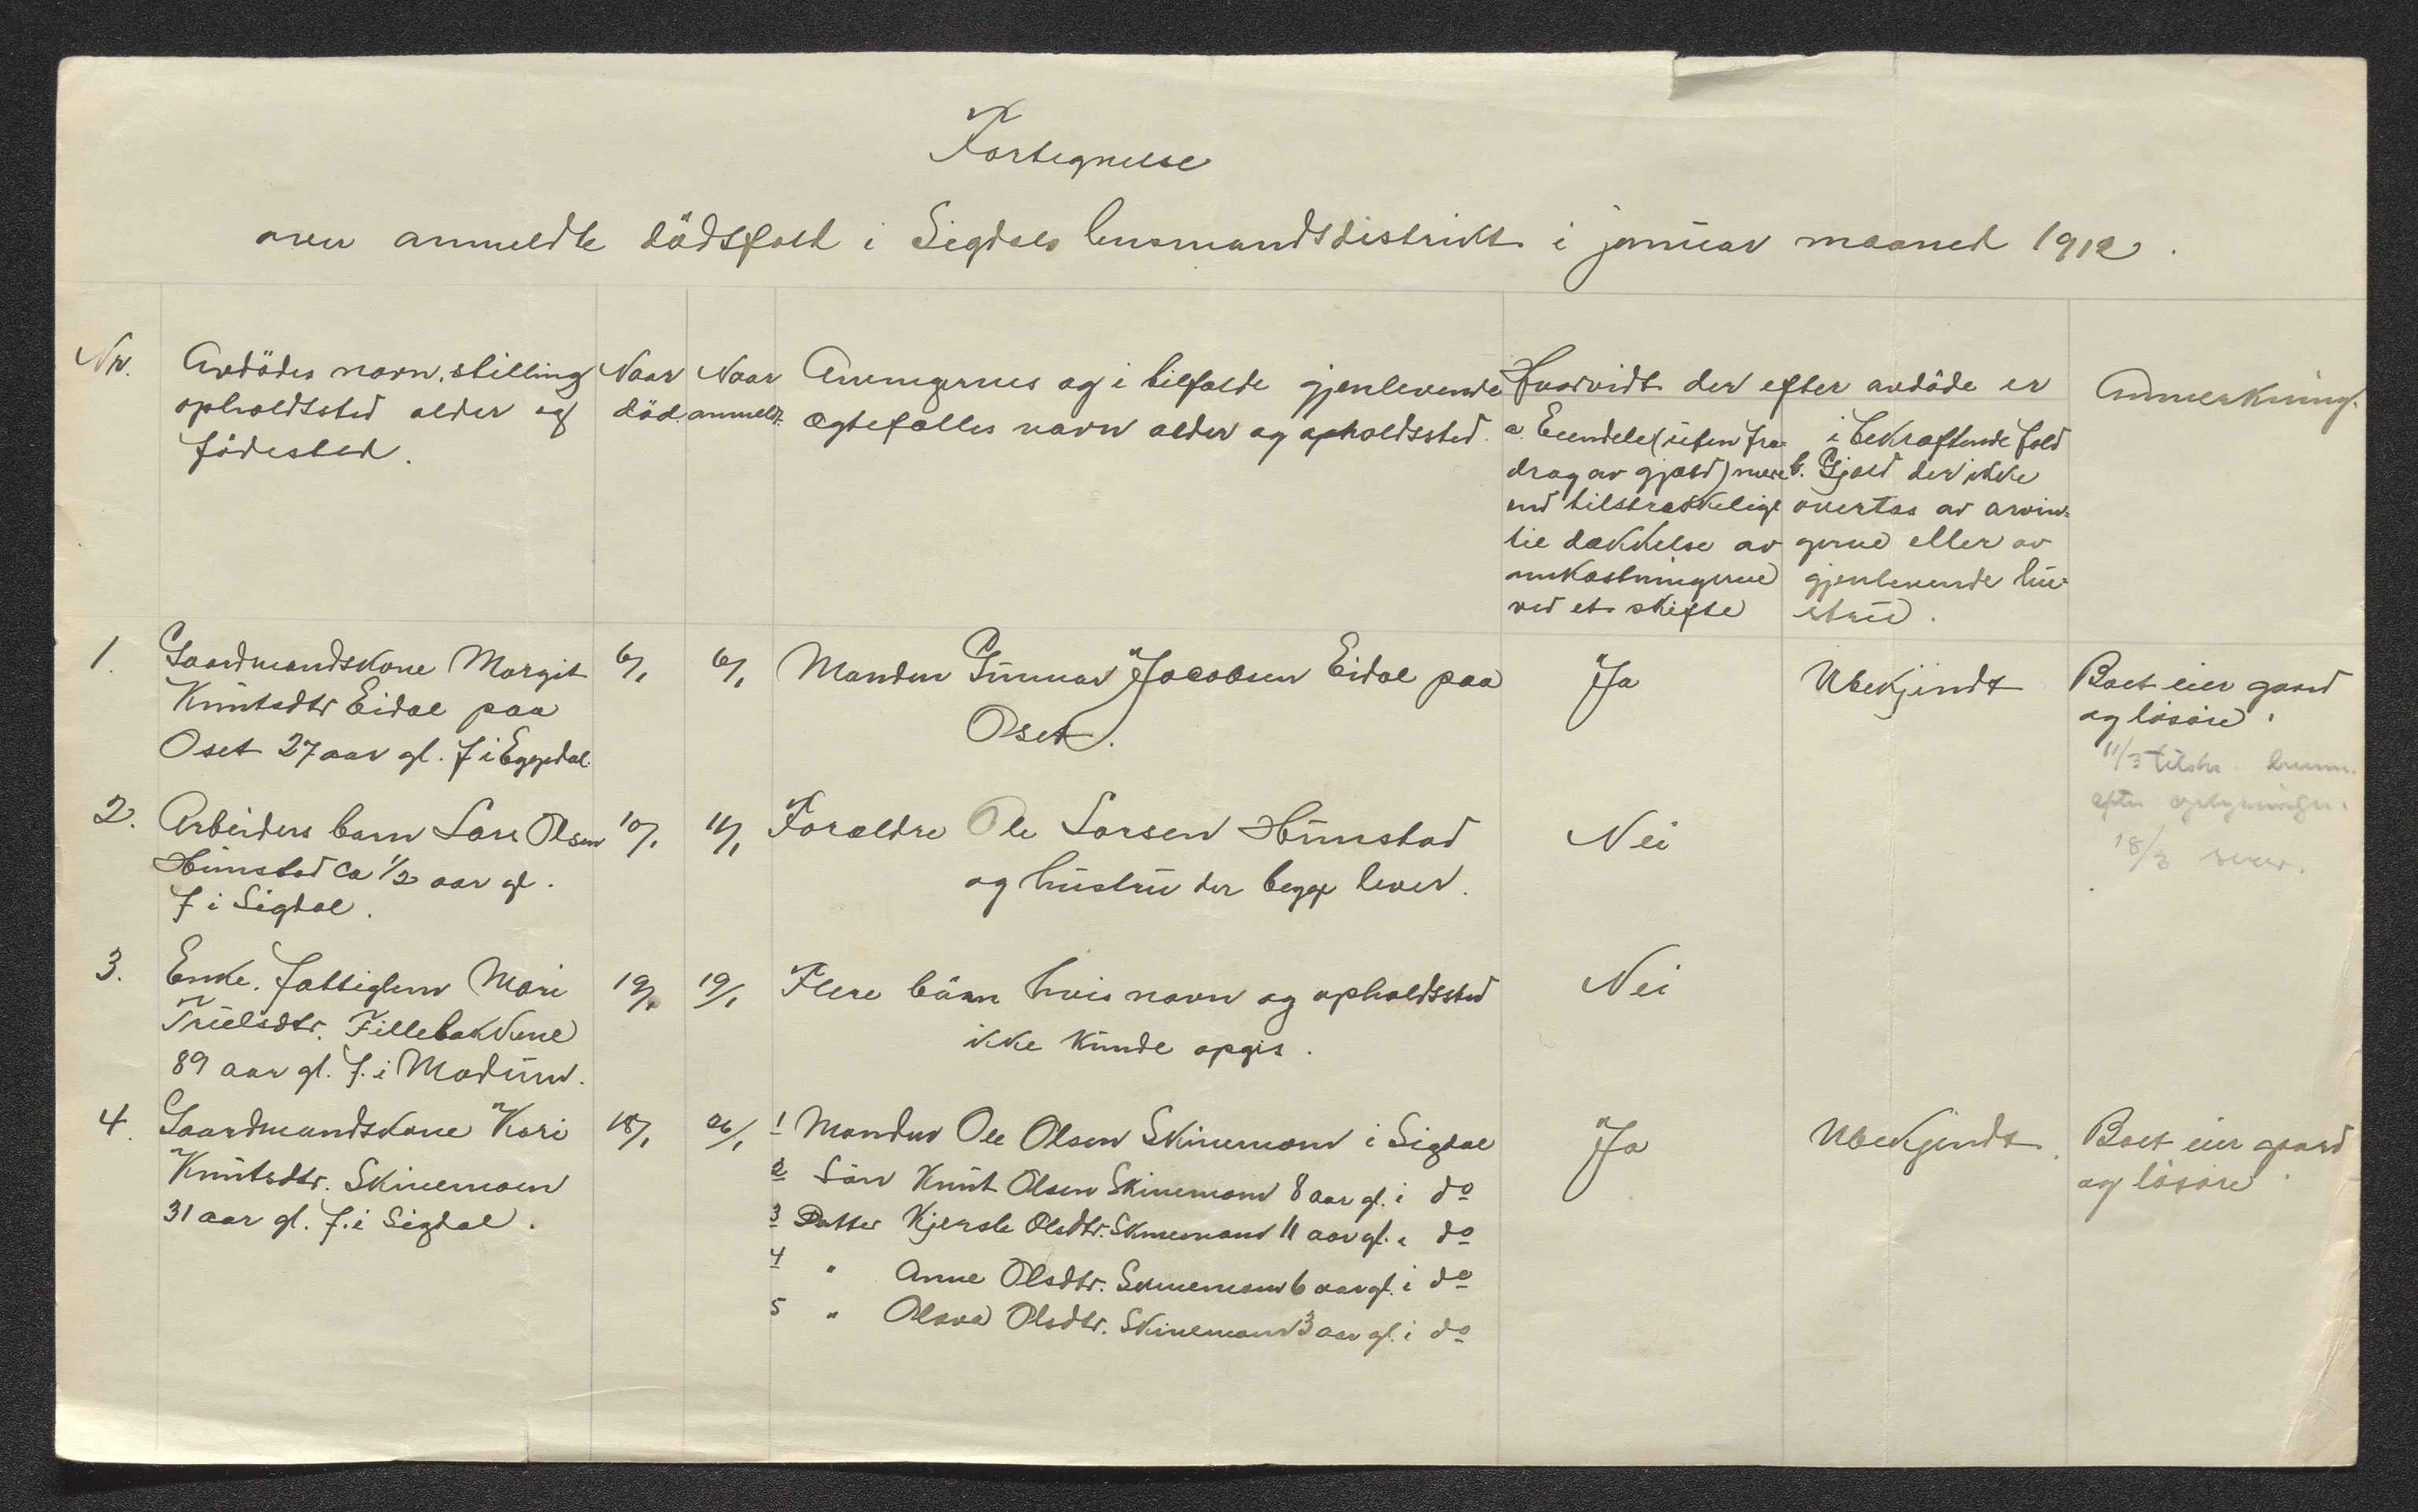 Fortegnelse
over anmeldte dödsfald i Sigdals lensmandsdistrikt i januar maaned 1912.
Nr.
Avdödes navn, stilling
opholdssted alder og
födested.
Naar
död.
Naar
anmeldt.
Arvingernes og i tilfælde gjenlevende
ægtefælles navn alder og opholdssted.
Hvorvidt der efter avdöde er
a. Eiendele (uten fra-
drag av gjæld) mere
end tilstrækkelige
til dækkelse av
omkostningerne
ved et skifte
i bekræftende fald
b. Gjæld der ikke
overtas av arvin-
gerne eller av
gjenlevende hu-
stru.
Anmerkning.
1.
Gaardmandskone Margit
Knutsdtr Eidal paa
Oset 27 aar gl. f i Eggedal.
6/1
6/1
Manden Gunnar Jacobsen Eidal paa
Oset.
Ja
Ubekjendt
Boet eier gaard
og lösöre.
11/3 tilskr.
18/3
2.
Arbeiders barn Lars Olsen
Hunstad ca 1/2 aar gl.
f i Sigdal.
10/1
11/1
Forældre Ole Larsen Hunstad
og hustru der begge lever.
Nei
3.
Enke, fattiglem Mari
Truelsdtr. Fillebakkene
89 aar gl. f. i Modum.
19/1
19/1
Flere börn hvis navn og opholdssted
ikke kunde opgis.
Nei
4.
Gaardmandskone Kari
Knutsdtr. Skinemoen
31 aar gl. f. i Sigdal.
18/1
26/1
1 Manden Ole Olsen Skinemoen i Sigdal
2 Sön Knut Olsen Skinemoen 8 aar gl. i do
3 Datter Kjersti Olsdtr. Skinemoen 11 aar gl. i do
4 " Anne Olsdtr. Skinemoen 6 aar gl. i do
5 " Olava Olsdtr. Skinemoen 3 aar gl. i do
Ja
Ubekjendt.
Boet eier gaard
og lösöre.